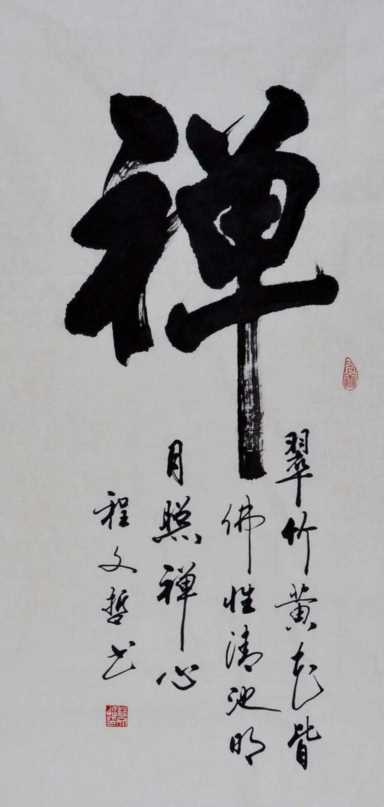 禅
翠竹黄花皆
佛性清池明
月照禅心
程文哲书